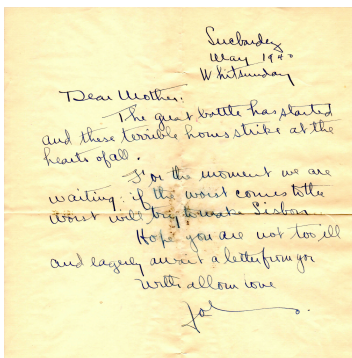 May 1940
Whitsunday
Dear Mother:
The great battle has started
and these terrible hours strike at the
hearts of all.
For the moment we are
waiting: if the worst comes to the
worst will try to make Lisbon
Hope you are not too ill
and eagerly await a letter from you
With all our love